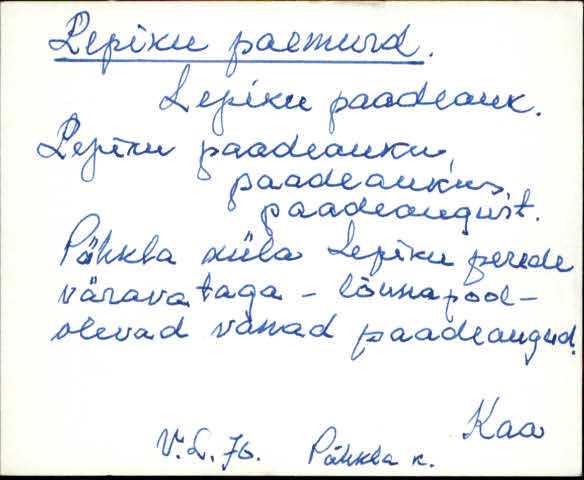 Lepiku paemurd.
Lepiku paadeauk.
Lepiku paadeauku,
paadeaukus,
paadeaugust.
Pähkla küla Lepiku perede
värava taga - lõunapool -
olevad vanad paadeaugud.
Kaa
V.L. 76. Pähkla k.